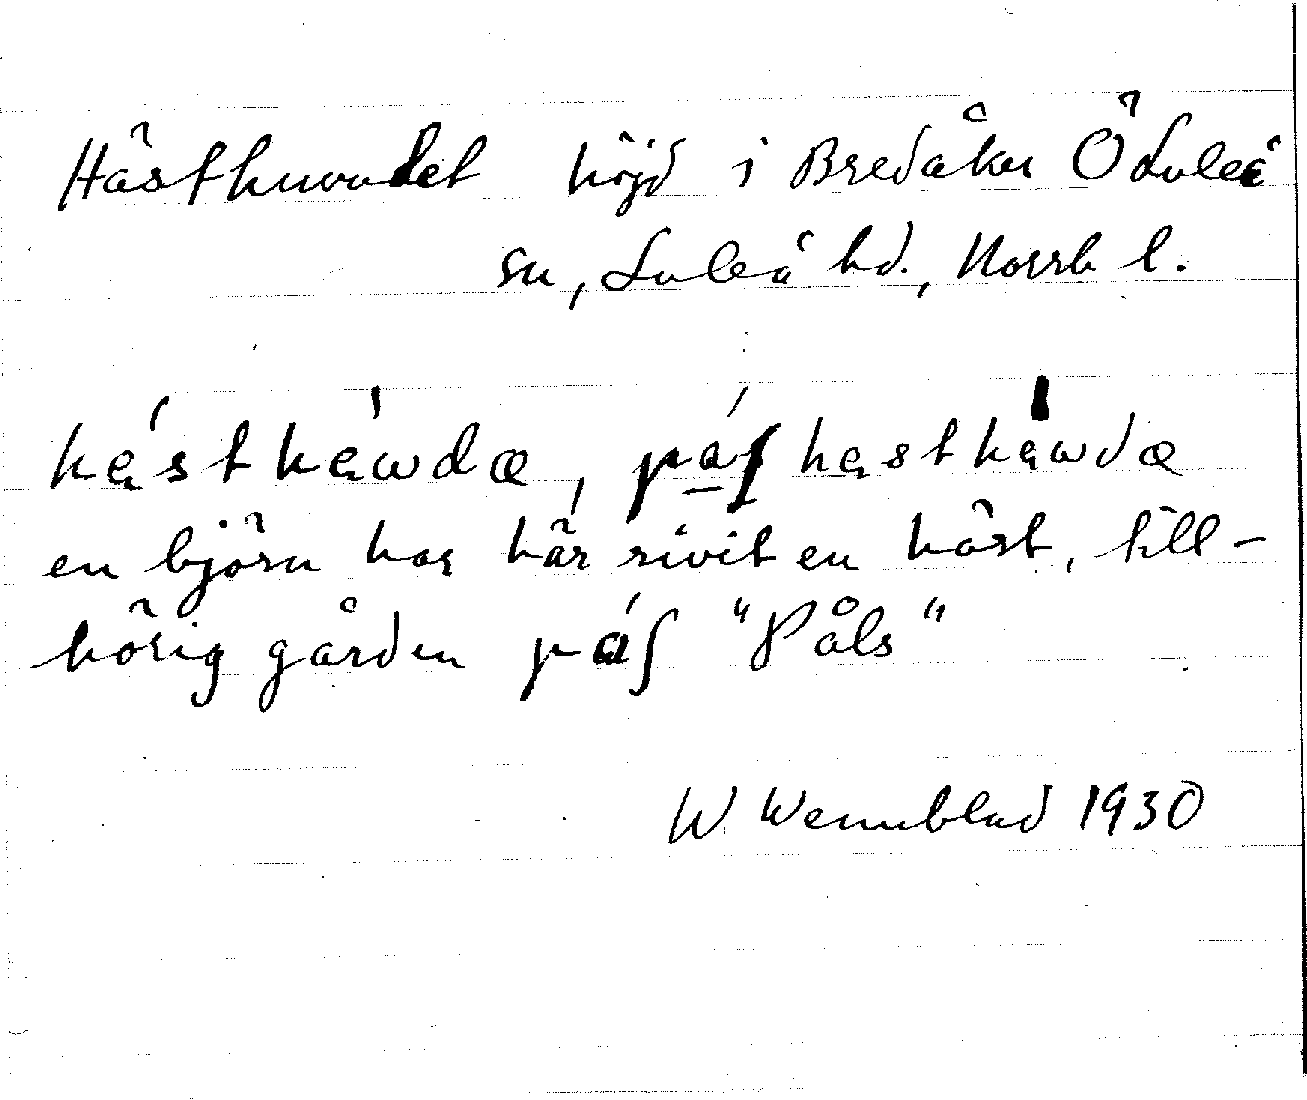 Hästhuvudet höjd i Bredåker Ö Luleå
sn, Luleå hd., Norrb l.
hásthàwdæ, páʃ hasthàwdæ
en björn har här rivit en häst, till-
hörig gården páʃ "Påls"
W Wennblad 1930